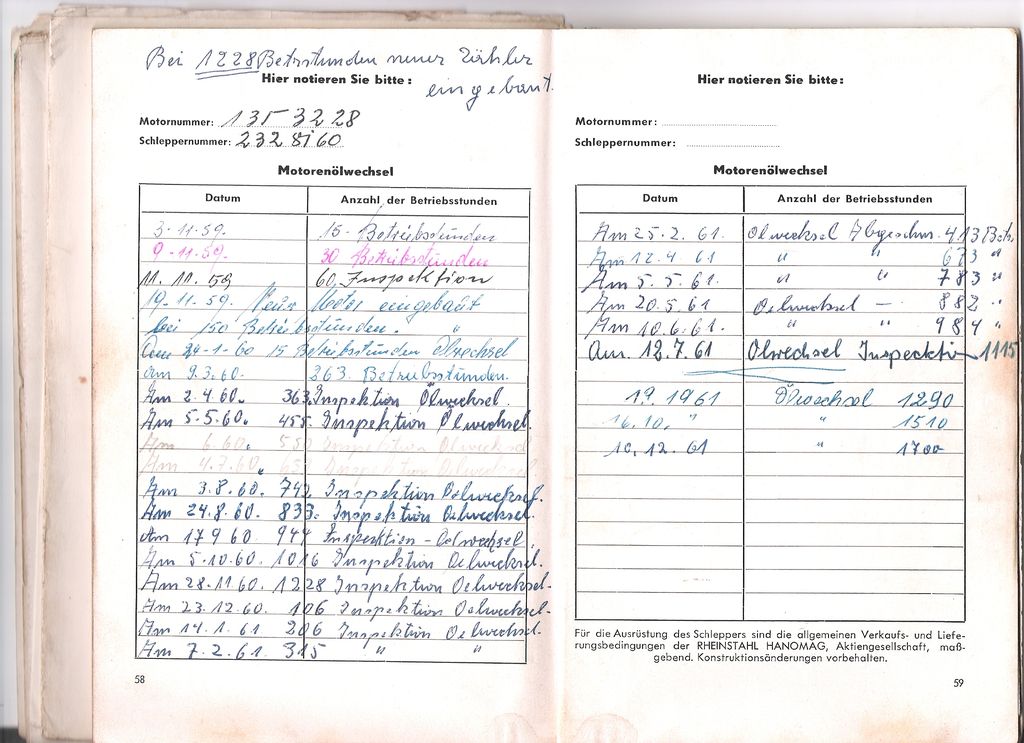 Bei 1228 Betrstunden neuer Zähler
eingebaut.
Hier notieren Sie bitte:
Motornummer: 135 3228
Schleppernummer: 232 8160
Motorenölwechsel
Datum Anzahl der Betriebsstunden
3.11.59. 15. Betriebstunden
9.11.59. 30 Betriebstunden
11.11.59 60, Inspektion
19.11.59. Neur Motor eingebaut
bei 150 Betriebstunden. "
Am 24-1-60 15 Betriebstunden Ölwechsel
am 9.3.60. 263. Betriebstunden.
Am 2.4.60. 363. Inspektion Ölwechsel.
Am 5.5.60. 455. Inspektion Ölwechsel.
Am 6.60. 55 Inspektion Oelwechsel
Am 4.7.60. 65 Inspektion Oelwechsel
Am 3.8.60. 742 Inspektion Oelwechsel.
Am 24.8.60. 833. Inspektion Oelwechsel.
Am 17 9 60 944 Inspektion - Oelwechsel.
Am 5.10.60. 1016 Inspektion Oelwechsel.
Am 28.11.60. 1228 Inspektion Oelwechsel.
Am 23.12.60. 106 Inspektion Oelwechsel.
Am 14.1.61 206 Inspektion Oelwechsel.
Am 7.2.61. 315 " "
58
Hier notieren Sie bitte:
Motornummer:
Schleppernummer:
Motorenölwechsel
Datum Anzahl der Betriebsstunden
Am 25.2.61. Ölwechsel Abgeschm. 413 Betr.
Am 12.4.61 " " 673 "
Am 5.5.61. " " 783 "
Am 20.5.61 Oelwechsel — 882 "
Am 10.6.61. " " 984 "
Am. 12.7.61 Ölwechsel Inspecktion 1115
19. 1961 Ölwechsel 1290
16.10. " " 1510
10.12.61 " 1700
Für die Ausrüstung des Schleppers sind die allgemeinen Verkaufs- und Liefe-
rungsbedingungen der RHEINSTAHL HANOMAG, Aktiengesellschaft, maß-
gebend. Konstruktionsänderungen vorbehalten.
59